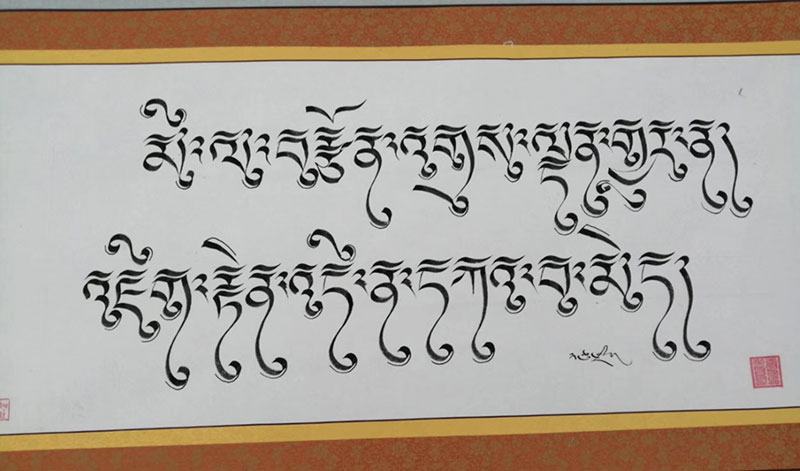 མི་ལ་བརྩོན་འགྲུས་ལྡན་གྱུར་ན།
འཇིག་རྟེན་འདི་ན་དཀའ་བ་མེད།